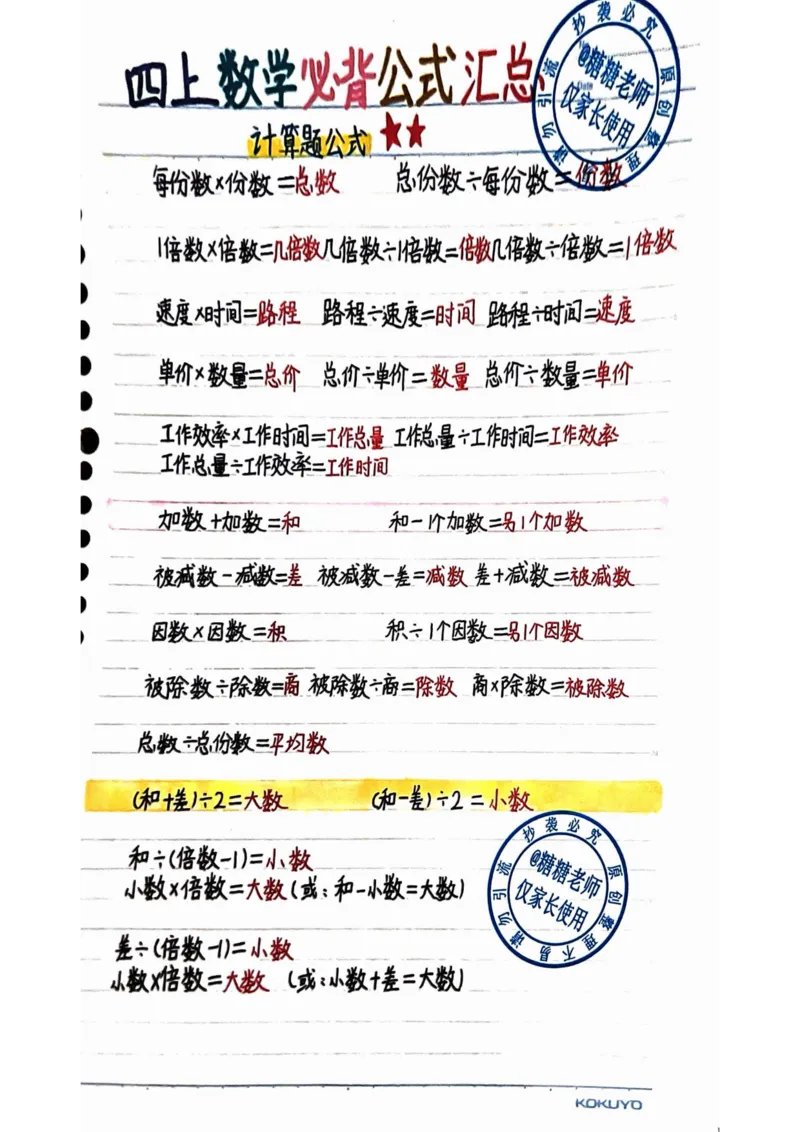 四上数学必背公式汇总
计算题公式 ★★
每份数×份数=总数 总份数÷每份数=份数
1倍数×倍数=几倍数 几倍数÷1倍数=倍数 几倍数÷倍数=1倍数
速度×时间=路程 路程÷速度=时间 路程÷时间=速度
单价×数量=总价 总价÷单价=数量 总价÷数量=单价
工作效率×工作时间=工作总量 工作总量÷工作时间=工作效率
工作总量÷工作效率=工作时间
加数+加数=和 和-1个加数=另1个加数
被减数-减数=差 被减数-差=减数 差+减数=被减数
因数×因数=积 积÷1个因数=另1个因数
被除数÷除数=商 被除数÷商=除数 商×除数=被除数
总数÷总份数=平均数
(和+差)÷2=大数 (和-差)÷2=小数
和÷(倍数-1)=小数
小数×倍数=大数(或:和-小数=大数)
差÷(倍数-1)=小数
小数×倍数=大数 (或:小数+差=大数)
抄袭必究 原创整理 请勿引流
@糖糖老师
仅家长使用
抄袭必究 原创整理不易 请勿引流
@糖糖老师
仅家长使用
KOKUYO